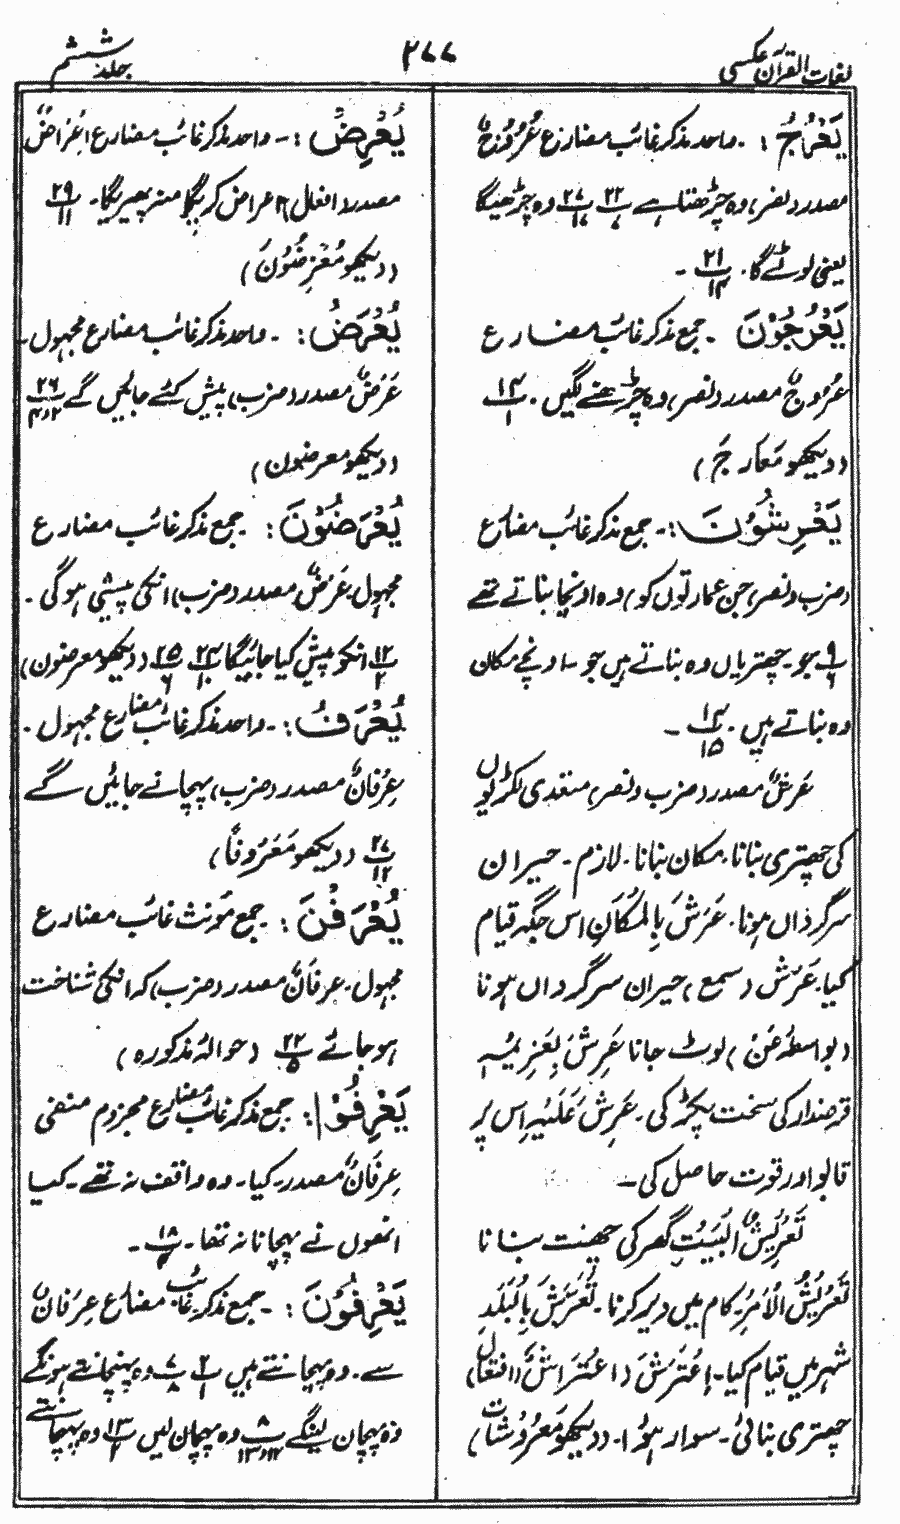 لغات القرآن عکسی
۲۷۷
جلد ششم
يَعْرُجُ : ۔ واحد مذکر غائب مضارع عُرُوْجٌ
مصدر (نصر) وہ چڑھتا ہے ۲۲/۷ ۲۷/۱۷ وہ چڑھیگا
یعنی لوٹے گا ۔ ۲۱/۱۴ ۔
يَعْرُجُوْنَ ۔ جمع مذکر غائب مضارع
عُرُوْجٌ مصدر (نصر) وہ چڑھنے لگیں ۔ ۱۴/۱
(دیکھو مَعَارِجَ)
يَعْرِشُوْنَ : ۔ جمع مذکر غائب مضارع
(ضرب و نصر) جن عمارتوں کو) وہ اونچا بناتے تھے
۹/۶ جو ۔ چھتریاں وہ بناتے ہیں جو ۔ اونچے مکان
وہ بناتے ہیں ۔ ۱۴/۱۵ ۔
عَرْشٌ مصدر (ضرب و نصر) متعدی لکڑیوں
کی چھتری بنانا ۔ مکان بنانا ۔ لازم ۔ حیران
سرگرداں ہونا ۔ عَرَشَ بِالْمَكَانِ اس جگہ قیام
کیا ۔ عَرِشَ (سمع) حیران سرگرداں ہونا
(بواسطہ عَنْ) لوٹ جانا عَرِشَ بِغَرِيْمِهٖ
قرضدار کی سخت پکڑ کی ۔ عَرِشَ عَلَيْهِ اس پر
قابو اور قوت حاصل کی ۔
تَعْرِيْشُ الْبَيْتِ گھر کی چھت بنانا
تَعْرِيْشُ الْاَمْرِ کام میں دیر کرنا ۔ تَعَرَّشَ بِالْبَلَدِ
شہر میں قیام کیا ۔ اِعْتَرَشَ (اِعْتِرَاشٌ (افتعال)
چھتری بنائی ۔ سوار ہوا ۔ (دیکھو مَعْرُوْشَاتٍ)
يُعْرِضُ : ۔ واحد مذکر غائب مضارع اِعْرَاضٌ
مصدر (افعال) اعراض کریگا منہ پھیریگا ۔ ۲۹/۱۱
(دیکھو مُعْرِضُوْنَ)
يُعْرَضُ : ۔ واحد مذکر غائب مضارع مجہول ۔
عَرْضٌ مصدر (ضرب) پیش کئے جائیں گے ۲۶/۲و۴
(دیکھو معرضون)
يُعْرَضُوْنَ : جمع مذکر غائب مضارع
مجہول ۔ عَرْضٌ مصدر (ضرب) انکی پیشی ہوگی ۔
۱۲/۲ انکو پیش کیا جائیگا ۲۴/۱۰ ۲۵/۶ (دیکھو معرضون)
يُعْرَفُ : ۔ واحد مذکر غائب مضارع مجہول ۔
عِرْفَانٌ مصدر (ضرب) پہچانے جائیں گے
۲۷/۱۲ (دیکھو مَعْرُوْفًا)
يُعْرَفْنَ : ۔ جمع مؤنث غائب مضارع
مجہول ۔ عِرْفَانٌ مصدر (ضرب) کہ انکی شناخت
ہو جائے ۲۲/۵ (حوالۂ مذکورہ)
يَعْرِفُوْا : جمع مذکر غائب مضارع مجزوم منفی
عِرْفَانٌ مصدر ۔ کیا ۔ وہ واقف نہ تھے ۔ کیا
انھوں نے پہچانا نہ تھا ۔ ۱۸/۴ ۔
يَعْرِفُوْنَ : ۔ جمع مذکر غائب مضارع عِرْفَانٌ
سے ۔ وہ پہچانتے ہیں ۲/۱ ۷/۸ وہ پہنچانتے ہونگے
۸/۱۲و۱۳ وہ پہچان لینگے وہ پہچان لیں ۱۳/۲ وہ پہچانتے